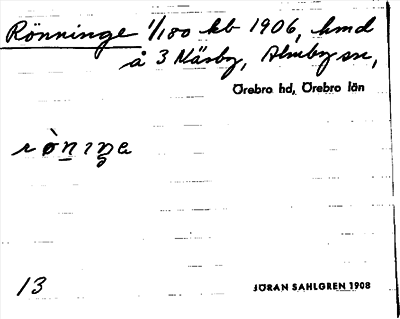 Rönninge 1/180 kb 1906, hmd
å 3 Näsby, Almby sn,
Örebro hd, Örebro län
rò̀nıŋe
13
JÖRAN SAHLGREN 1908